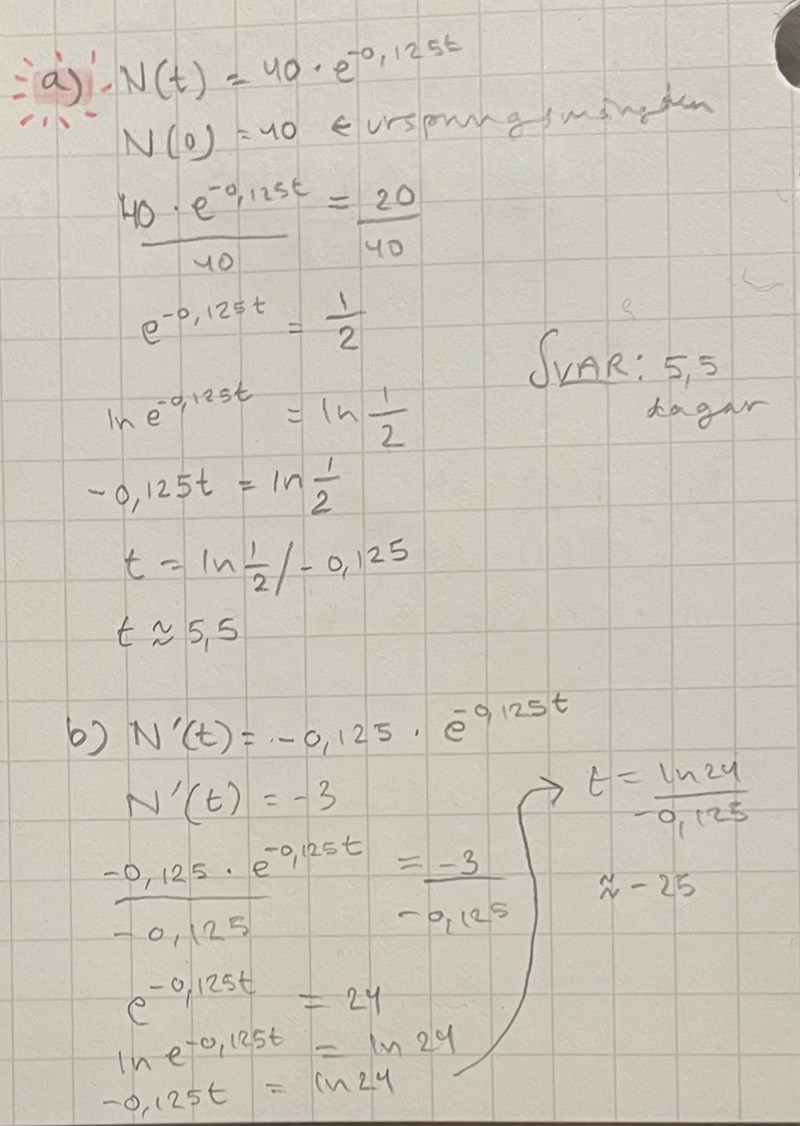 a) N(t) = 40 · e^-0,125t
N(0) = 40 ← ursprungsmängden
40 · e^-0,125t / 40 = 20 / 40
e^-0,125t = 1/2
ln e^-0,125t = ln 1/2
SVAR: 5,5
dagar
-0,125t = ln 1/2
t = ln 1/2 / -0,125
t ≈ 5,5
b) N'(t) = -0,125 · e^-0,125t
N'(t) = -3
-0,125 · e^-0,125t / -0,125 = -3 / -0,125
e^-0,125t = 24
ln e^-0,125t = ln 24
-0,125t = ln 24
→ t = ln 24 / -0,125
≈ -25